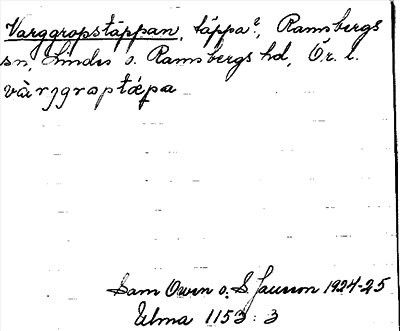 Varggropstäppan, täppa?, Ramsbergs
sn, Lindes o. Ramsbergs hd, Ör. l.
Sam Owen o. S. Jansson 1924-25
Ulma 1153 : 3